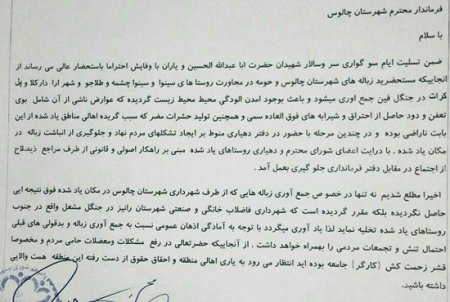 فرماندار محترم شهرستان چالوس
با سلام
ضمن تسلیت ایام سو گواری سر وسالار شهیدان حضرت ابا عبدالله الحسین و یاران با وفایش احتراما باستحضار عالی می رساند از
انجاییکه مستحضرید زباله های شهرستان چالوس و حومه در مجاورت روستا ها ی سینوا و سینوا چشمه و طلاجو و شهر ارا دارکلا و پل
کرات در جنگل فین جمع اوری میشود و باعث بوجود امدن الودگی محیط محیط زیست گردیده که عوارض ناشی از آن شامل بوی
تعفن و دود حاصل از احتراق و شیرابه های فوق العاده سمی و همچنین تولید حشرات مضر که سبب گریده اهالی مناطق یاد شده از این
بابت ناراضی بوده و در چندین مرحله با حضور در دفتر دهیاری منوط بر ایجاد تشکلهای مردم نهاد و جلوگیری از انباشت زباله در
مکان یاد شده . با درایت اعضای شورای محترم و دهیاری روستاهای یاد شده مبنی بر راهکار اصولی و قانونی از طرف مراجع ذیصلاح
از اجتماع در مقابل دفتر فرمانداری جلو گیری بعمل آمد .
اخیرا مطلع شدیم نه تنها در خصوص جمع آوری زباله هایی که از طرف شهرداری شهرستان چالوس در مکان یاد شده فوق نتیجه ایی
حاصل نگردیده بلکه مقرر گردیده است که شهرداری فاضلاب خانگی و صنعتی شهرستان رانیز در جنگل مشعل واقع در جنوب
روستاهای یاد شده تخلیه نماید لذا یاد آوری میگردد با توجه به آمادگی اذهان عمومی نسبت به جمع آوری زباله و بدقولی های قبلی
احتمال تنش و تجمعات مردمی را بهمراه خواهد داشت . از آنجاییکه حضرتعالی در رفع مشکلات ومعضلات حامی مردم و مخصوصا
قشر زحمت کش {کارگر} جامعه بوده اید انتظار می رود به یاری اهالی منطقه و احقاق حقوق از دست رفته این منطقه همت والایی
داشته باشید.